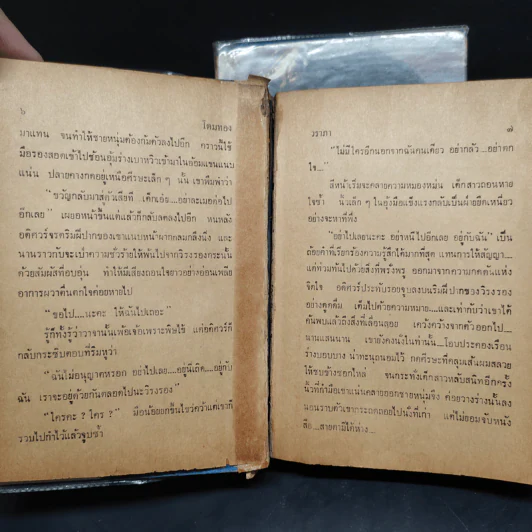 ๖
โดมทอง
มาแทน จนทำให้ชายหนุ่มต้องก้มตัวลงไปอีก คราวนี้ใช้
มือรองสอดเข้าไปช้อนอุ้มร่างเบาหวิวเข้ามาในอ้อมแขนแนบ
แน่น ปลายคางกดอยู่เหนือศีรษะเล็ก ๆ นั้น เขาพึมพำว่า
"ขวัญกลับมาสู่ตัวเสียที เด็กเอ๋ย...อย่าละเมอต่อไป
อีกเลย" เผยอหน้าขึ้นแต่แล้วก็กลับลดลงไปอีก ทนหลัง
อดิศวร์จรดริมฝีปากของเขาแนบหน้าผากกลมกลึงนิ่ง และ
นานราวกับจะเป่าความชั่วร้ายให้พ้นไปจากวิรงรองกระนั้น
ด้วยสัมผัสที่อบอุ่น ทำให้มีเสียงถอนใจยาวอย่างอ่อนเพลีย
อาการผวาตื่นตกใจค่อยหายไป
"ขอไป.....นะคะ ให้ฉันไปเถอะ"
รู้ก็ทั้งรู้ว่าวาจานั้นเพ้อเจ้อเพราะพิษไข้ แต่อดิศวร์ก็
กลับกระซิบตอบที่ริมหูว่า
"ฉันไม่อนุญาตหรอก อย่าไปเลย....อยู่นี่เถิด....อยู่กับ
ฉัน เราจะอยู่ด้วยกันตลอดไปนะวิรงรอง"
"ใครคะ ? ใคร ?" มือน้อยยกขึ้นไขว่คว้าแต่เขาก็
รวมไปกำไว้แล้วจูบซ้ำ
วราภา
๗
"ไม่มีใครอีกนอกจากฉันคนเดียว อย่ากลัว...อย่าตก
ใจ..."
สีหน้าเริ่มจะคลายความหมองหม่น เด็กสาวถอนหาย
ใจซ้ำ นิ้วเล็ก ๆ ในอุ้งมืออแข็งแรงกลับเป็นฝ่ายยึดเหนี่ยว
อย่างจะหาที่พึ่ง
"อย่าไปเลยนะคะ อย่าหนีไปอีกเลย อยู่กับฉัน" เป็น
ถ้อยคำที่เรียกร้องความรู้สึกได้มากที่สุด แทนการให้สัญญา....
แต่ท่วมท้นไปด้วยสิ่งที่พรั่งพรู ออกมาจากความกดดันแห่ง
จิตใจ อดิศวร์ประทับรอยจูบลงบนริมฝีปากของวิรงรอง
อย่างดูดดื่ม เต็มไปด้วยความหมาย....และเท่ากับว่าเขาได้
ค้นพบแล้วถึงสิ่งที่เลื่อนลอย เคว้งคว้างจากตัวออกไป....
นานแสนนาน เขายังคงนั่งในท่านั้น....โอบประคองเรือน
ร่างบอบบาง น่าทะนุถนอมไว้ กดศีรษะที่คลุมเส้นผมสลวย
ให้ซบข้างซอกไหล่ จนกระทั่งเด็กสาวหลับสนิทอีกครั้ง
นิ้วที่กำมือเขาแน่นคลายออกชายหนุ่มจึง ค่อยวางร่างนั้นลง
นอนราบตัวเขากระถดถอยไปนั่งที่เก่า แต่ไม่ยอมจับหนัง
สือ....สายตามิได้ห่าง....